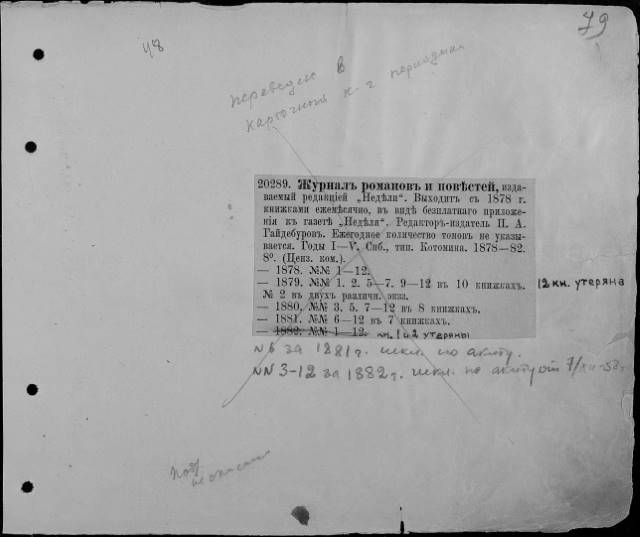 79
48
переведено в
карточный к-г периодики
20289. Журналъ романовъ и повѣстей, изда-
ваемый редакціей „Недѣли“. Выходитъ съ 1878 г.
книжками ежемѣсячно, въ видѣ безплатнаго приложе-
нія къ газетѣ „Недѣля“. Редакторъ-издатель П. А.
Гайдебуровъ. Ежегодное количество томовъ не указы-
вается. Годы I—V. Спб., тип. Котомина. 1878—82.
8⁰. (Ценз. ком.).
— 1878. №№ 1—12.
— 1879. №№ 1. 2. 5—7. 9—12 въ 10 книжкахъ. 12 кн. утеряна
№ 2 въ двухъ различн. экз.
— 1880. №№ 3. 5. 7—12 въ 8 книжкахъ.
— 1881. №№ 6—12 въ 7 книжкахъ.
— 1882. №№ 1—12. 1 и 2 утеряны
N 6 за 1881 г. искл. по акту.
NN 3-12 за 1882 г. искл. по акту от 7/XII-58 г.